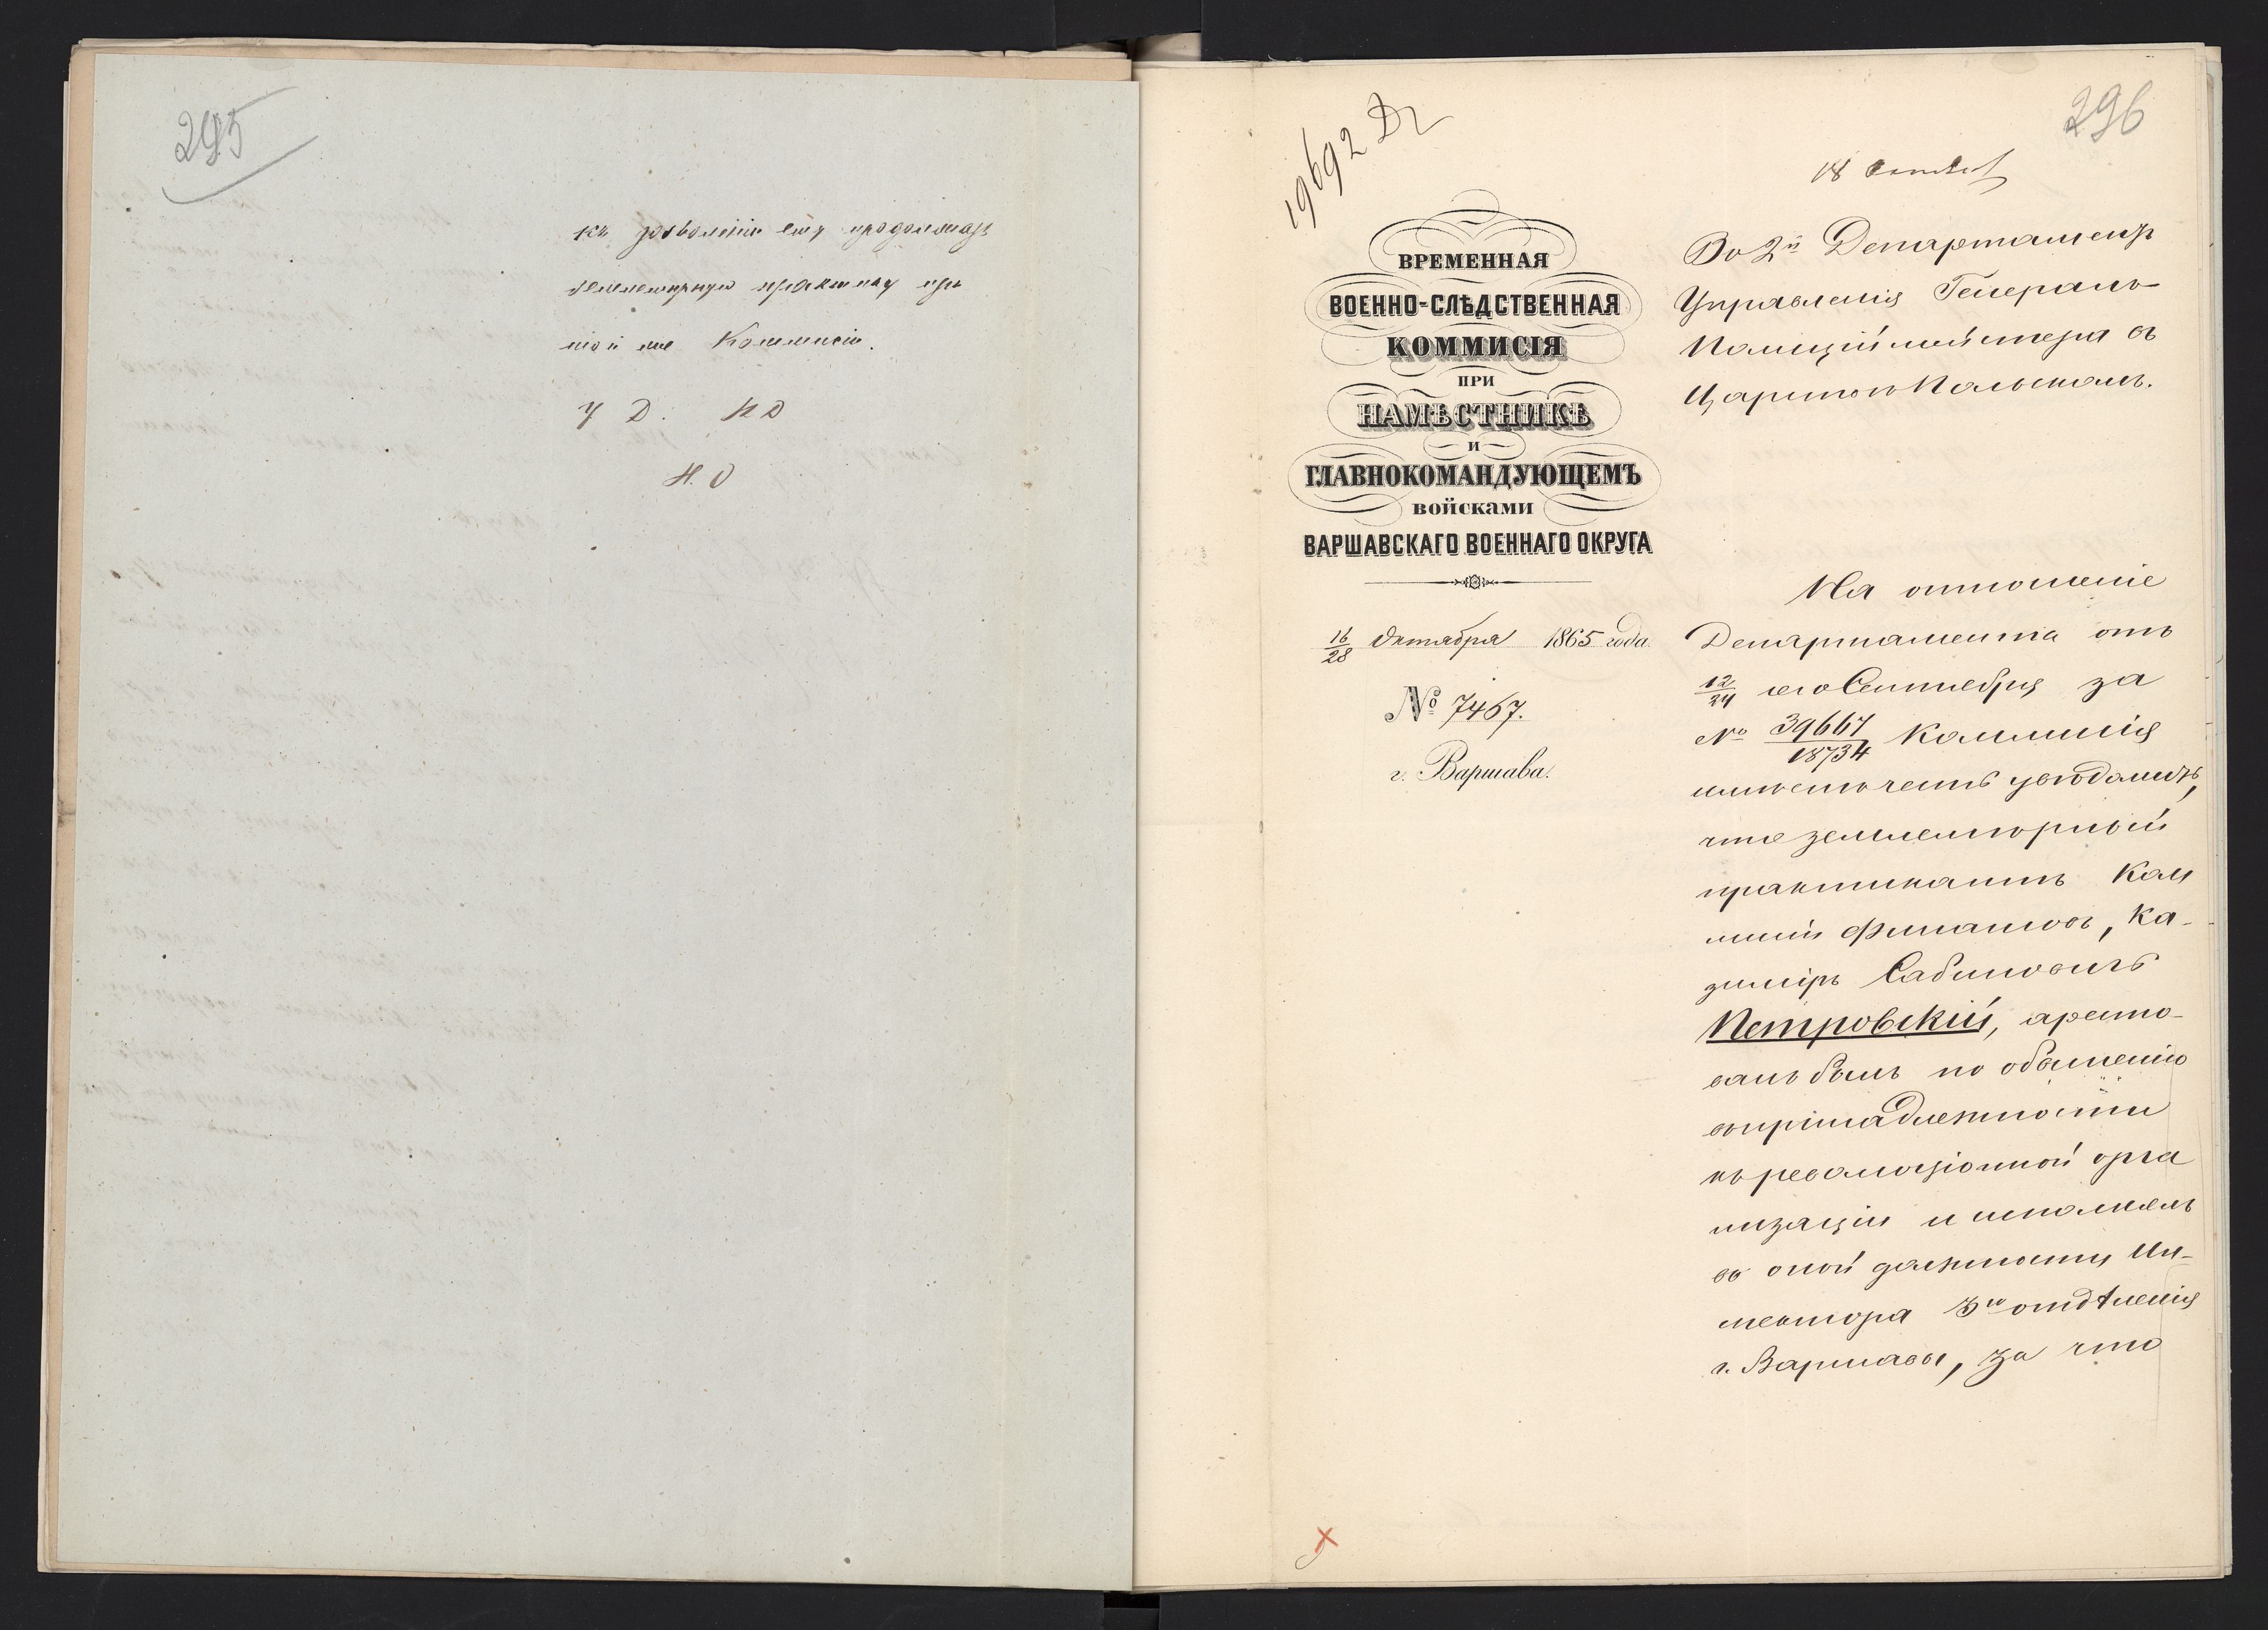 295
къ дозволенію ему продолжать
землемѣрную практику при
той же Коммисіи.
У Д. Н Д
Н. О
296
19692 Д2
18 Октяб
ВРЕМЕННАЯ
ВОЕННО-СЛѢДСТВЕННАЯ
КОММИСІЯ
ПРИ
НАМѢСТНИКѢ
И
ГЛАВНОКОМАНДУЮЩЕМЪ
ВОЙСКАМИ
ВАРШАВСКАГО ВОЕННАГО ОКРУГА
16/28 Октября 1865 года.
№ 7467.
г. Варшава.
Во 2й Департаментъ
Управленія Генералъ-
Полиціймейстера въ
Царствѣ Польскомъ.
На отношеніе
Департамента отъ
12/24 сего Сентября за
№ 39667/18734 Коммисія
имѣетъ честь увѣдомить,
что землемѣрный
практикантъ Ком
мисіи Финансовъ, Ка-
зиміръ Сабиновичъ
Петровскій, аресто-
ванъ былъ по обвиненію
въ принадлежности
къ революціонной орга
низаціи и исполнялъ
въ оной должность Ин-
спектора 3го отдѣленія
г. Варшавы, за что